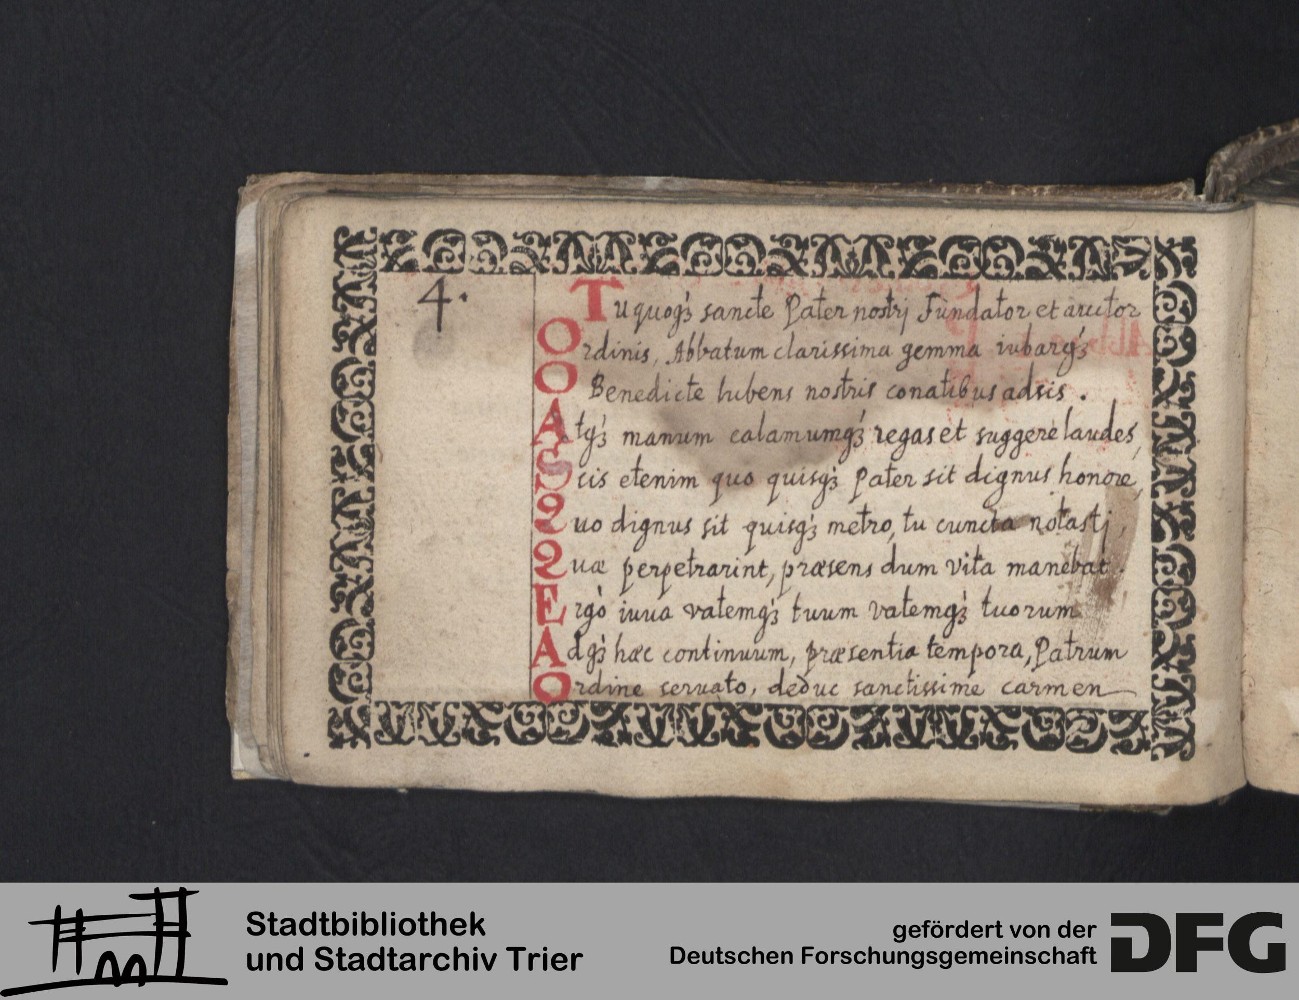 4.
Tu quoqꝫ sancte Pater nostrj Fundator et auctor
Ordinis, Abbatum clarissima gemma iubarqꝫ
O Benedicte lubens nostris conatibus adsis.
Atqꝫ manum calamumqꝫ regas et suggere laudes,
Scis etenim quo quisqꝫ Pater sit dignus honore,
Quo dignus sit quisqꝫ metro, tu cuncta notastj,
Quæ perpetrarint, præsens dum vita manebat.
Ergò iuua vatemqꝫ tuum vatemqꝫ tuorum
Adqꝫ hæc continuum, præsentia tempora, Patrum
Ordine seruato, deduc sanctissime carmen
Stadtbibliothek
und Stadtarchiv Trier
gefördert von der
Deutschen Forschungsgemeinschaft
DFG